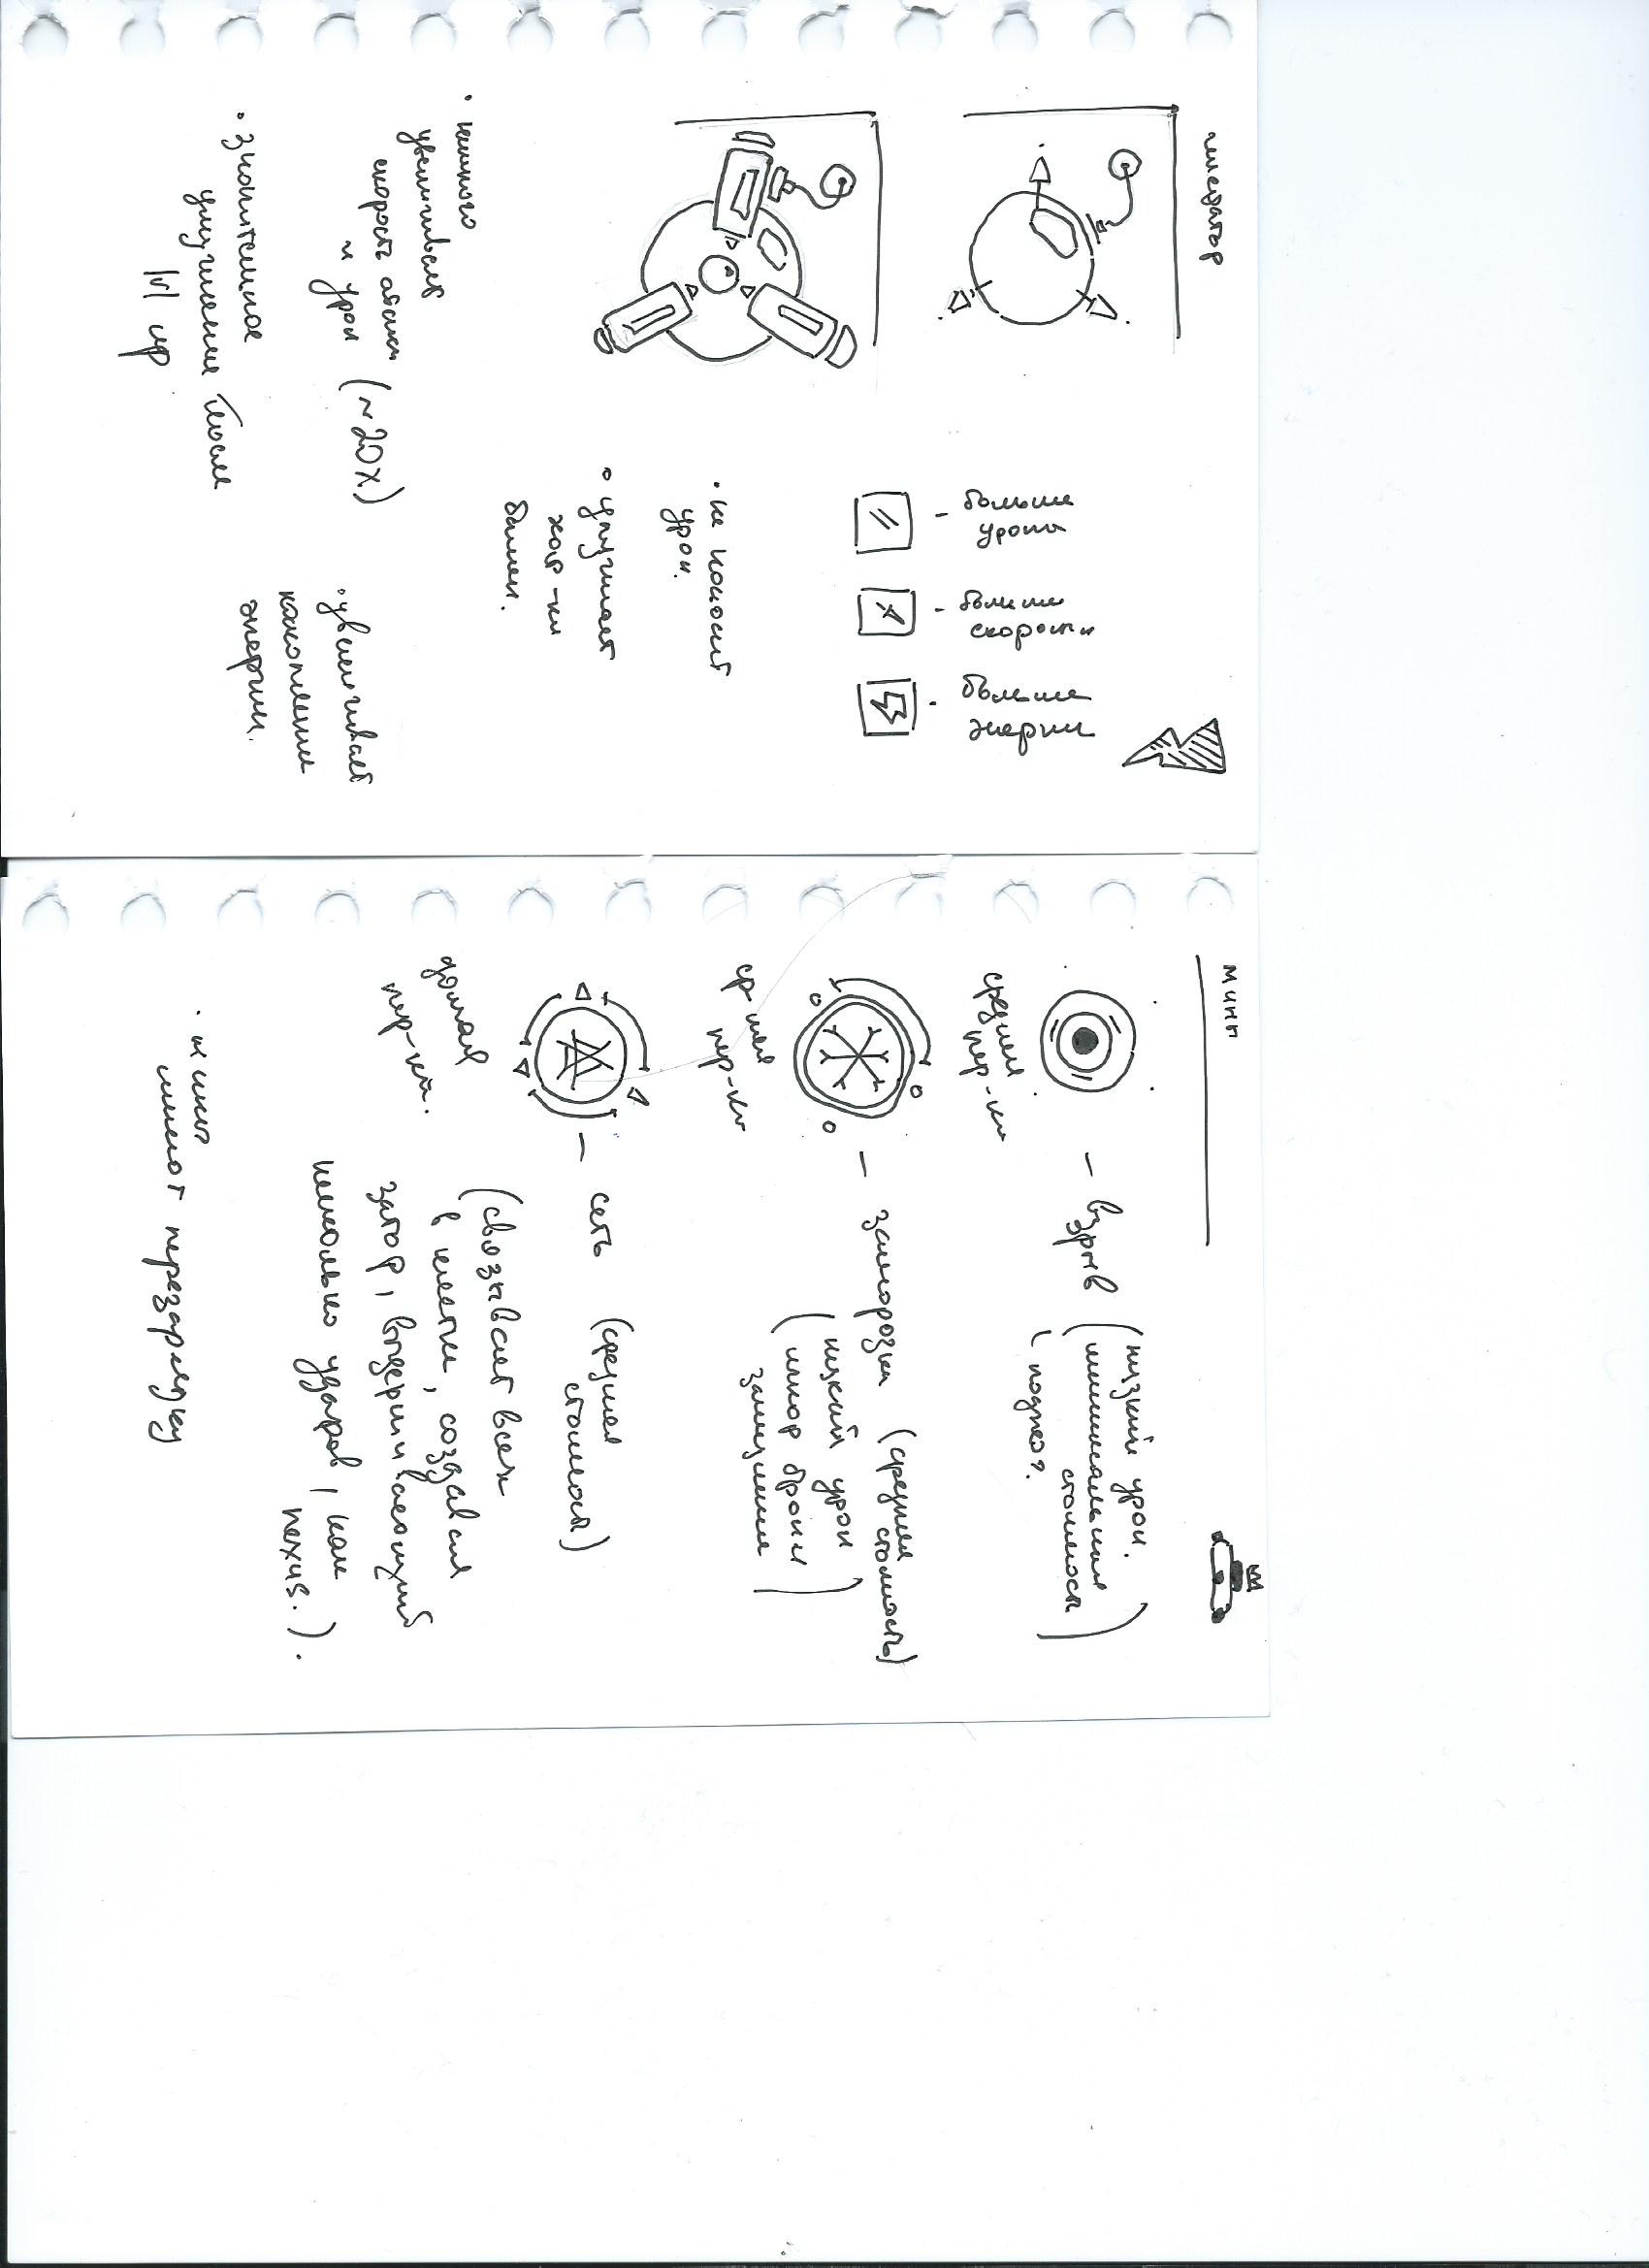 больше
урона
больше
скорости
больше
энергии
• не наносит
урон.
• улучшает
хар-ки
башен.
• немного
увеличивает
скорость атаки
и урон (~20%)
• увеличивает
накопление
энергии.
• значительное
улучшение после
lvl up
мины
– взрыв (низкий урон.
минимальная
стоимость
поджог.)
средняя
пер-ка
– заморозка (средняя
стоимость)
(низкий урон
игнор брони
замедление)
ср-няя
пер-ка
– сеть (средняя
стоимость)
долгая
пер-ка.
(связывает всех
в клетке, создавая
затор, выдерживающий
несколько ударов, как
nexus.).
• мины
имеют перезарядку